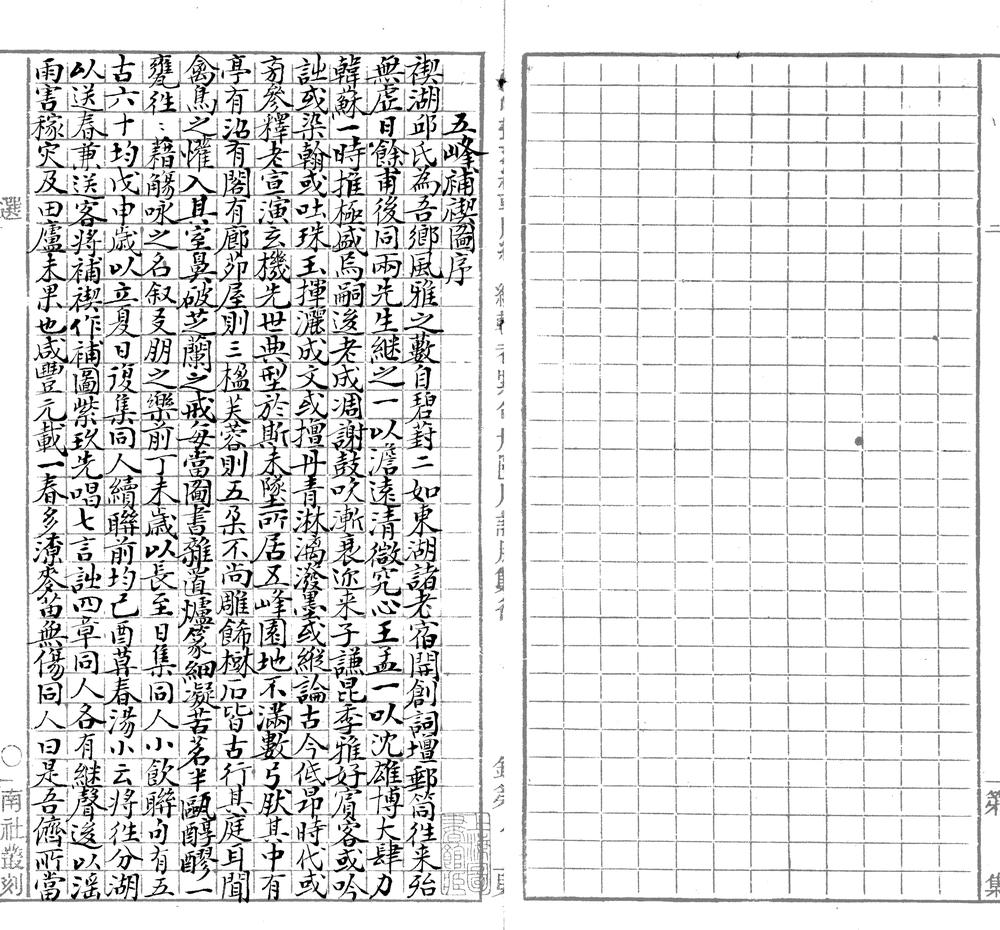 五峰補禊圖序
禊湖邱氏為吾鄉風雅之藪自碧葑二如東湖諸老宿開創詞壇郵筒往来殆
無虛日餘甫後同兩先生継之一以澹遠清微究心王孟一以沈雄博大肆力
韓蘇一時推極盛焉嗣後老成凋謝鼓吹漸衰迩来子謙昆季雅好賓客或吟
詘或染翰或吐珠玉揮灑成文或擅丹青淋漓潑墨或縱論古今低昂時代或
旁參釋老宣演玄機先世典型於斯未墜所居五峰園地不滿數弓肰其中有
亭有沼有閣有廊茆屋則三楹芙蓉則五朶不尚雕餙樹石皆古行其庭耳聞
禽鳥之懽入其室鼻破芝蘭之戒每當圖書雜置爐篆細凝苦茗半甌醇醪一
甕往〻藉觴咏之名叙友朋之樂前丁未歲以長至日集同人小飲聯句有五
古六十均戊申歲以立夏日復集同人續聯前均己酉莫春湯小云將往分湖
以送春兼送客將補禊作補圖紫玖先唱七言詘四章同人各有継聲後以滛
雨害稼灾及田廬未果也咸豐元載一春多潦麥苗無傷同人曰是吾儕所當
選
南社叢刻
第
集